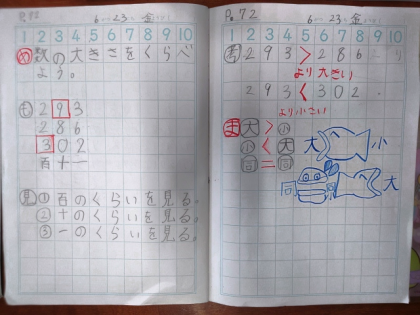 P.72
6 23 金
1 2 3 4 5 6 7 8 9 10
め 数の大きさをくらべ
よう。
も 293
286
302
百十一
見 ① 百のくらいを見る。
② 十のくらいを見る。
③ 一のくらいを見る。
P.72
6 23 金
1 2 3 4 5 6 7 8 9 10
考 293>286
より大きい
293<302.
より小さい
ま 大>小
小<大
同=同
大 小
同 同 大